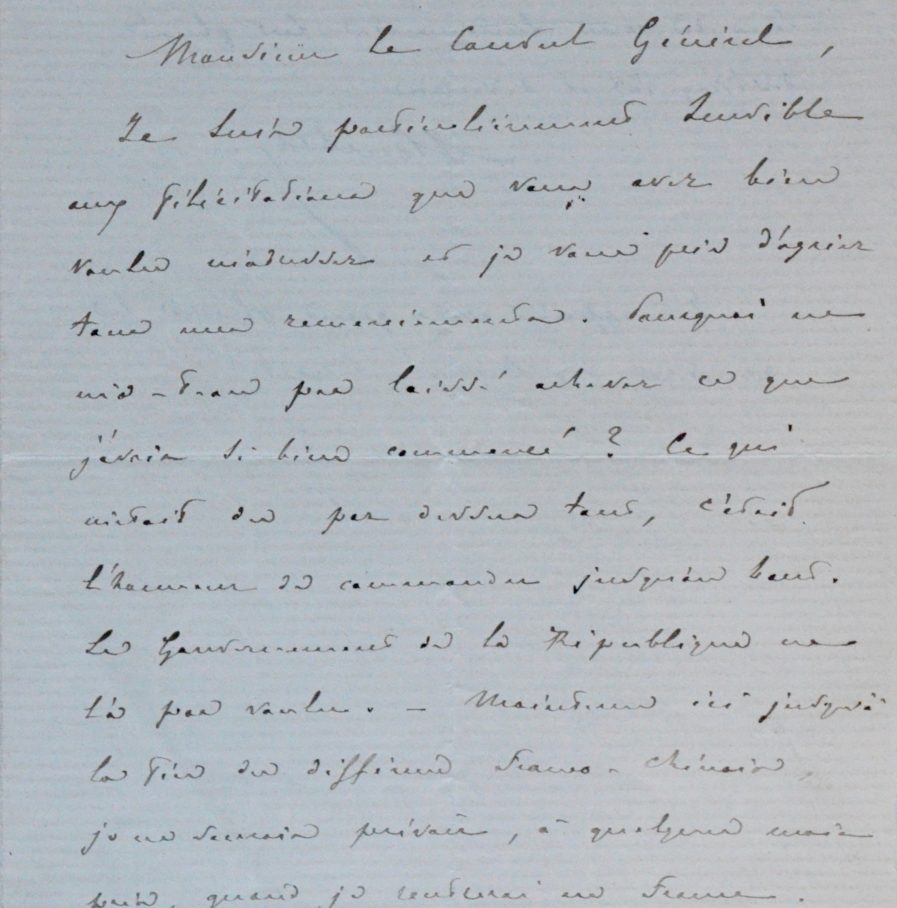 Monsieur le Consul Général,
Je suis particulièrement sensible
aux félicitations que vous avez bien
voulu m'adresser et je vous prie d'agréer
tous mes remerciements. Pourquoi ne
m'a-t-on pas laissé achever ce que
j'avais si bien commencé ? Ce qui
m'était dû par dessus tout, c'était
l'honneur de commander jusqu'au bout.
Le Gouvernement de la République ne
l'a pas voulu. — Maintenu ici jusqu'à
la fin du différend franco-chinois,
je ne saurais prévoir, à quelques mois
près, quand je rentrerai en France.